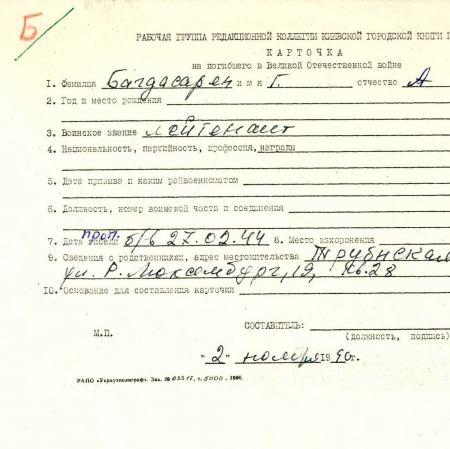 Б
РАБОЧАЯ ГРУППА РЕДАКЦИОННОЙ КОЛЛЕГИИ КИЕВСКОЙ ГОРОДСКОЙ КНИГИ П
КАРТОЧКА
на погибшего в Великой Отечественной войне
1. Фамилия Багдасарен имя Г. отчество А
2. Год и место рождения
3. Воинское звание лейтенант
4. Национальность, партийность, профессия, награды
5. Дата призыва и каким райвоенкоматом
6. Должность, номер воинской части и соединения
проп.
7. Дата гибели б/в 27.02.44 8. Место захоронения
9. Сведения о родственниках, адрес местожительства
ул. Р. Люксембург, 19, кв. 28
10. Основание для составления карточки
М.П. СОСТАВИТЕЛЬ:
(должность, подпись)
"2" ноября 1990г.
РАПО «Укрвузполиграф». Зак. т. 5000,